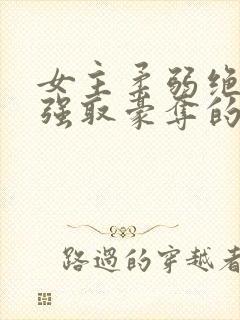 女主柔弱绝
强取豪夺的
路過的穿越者